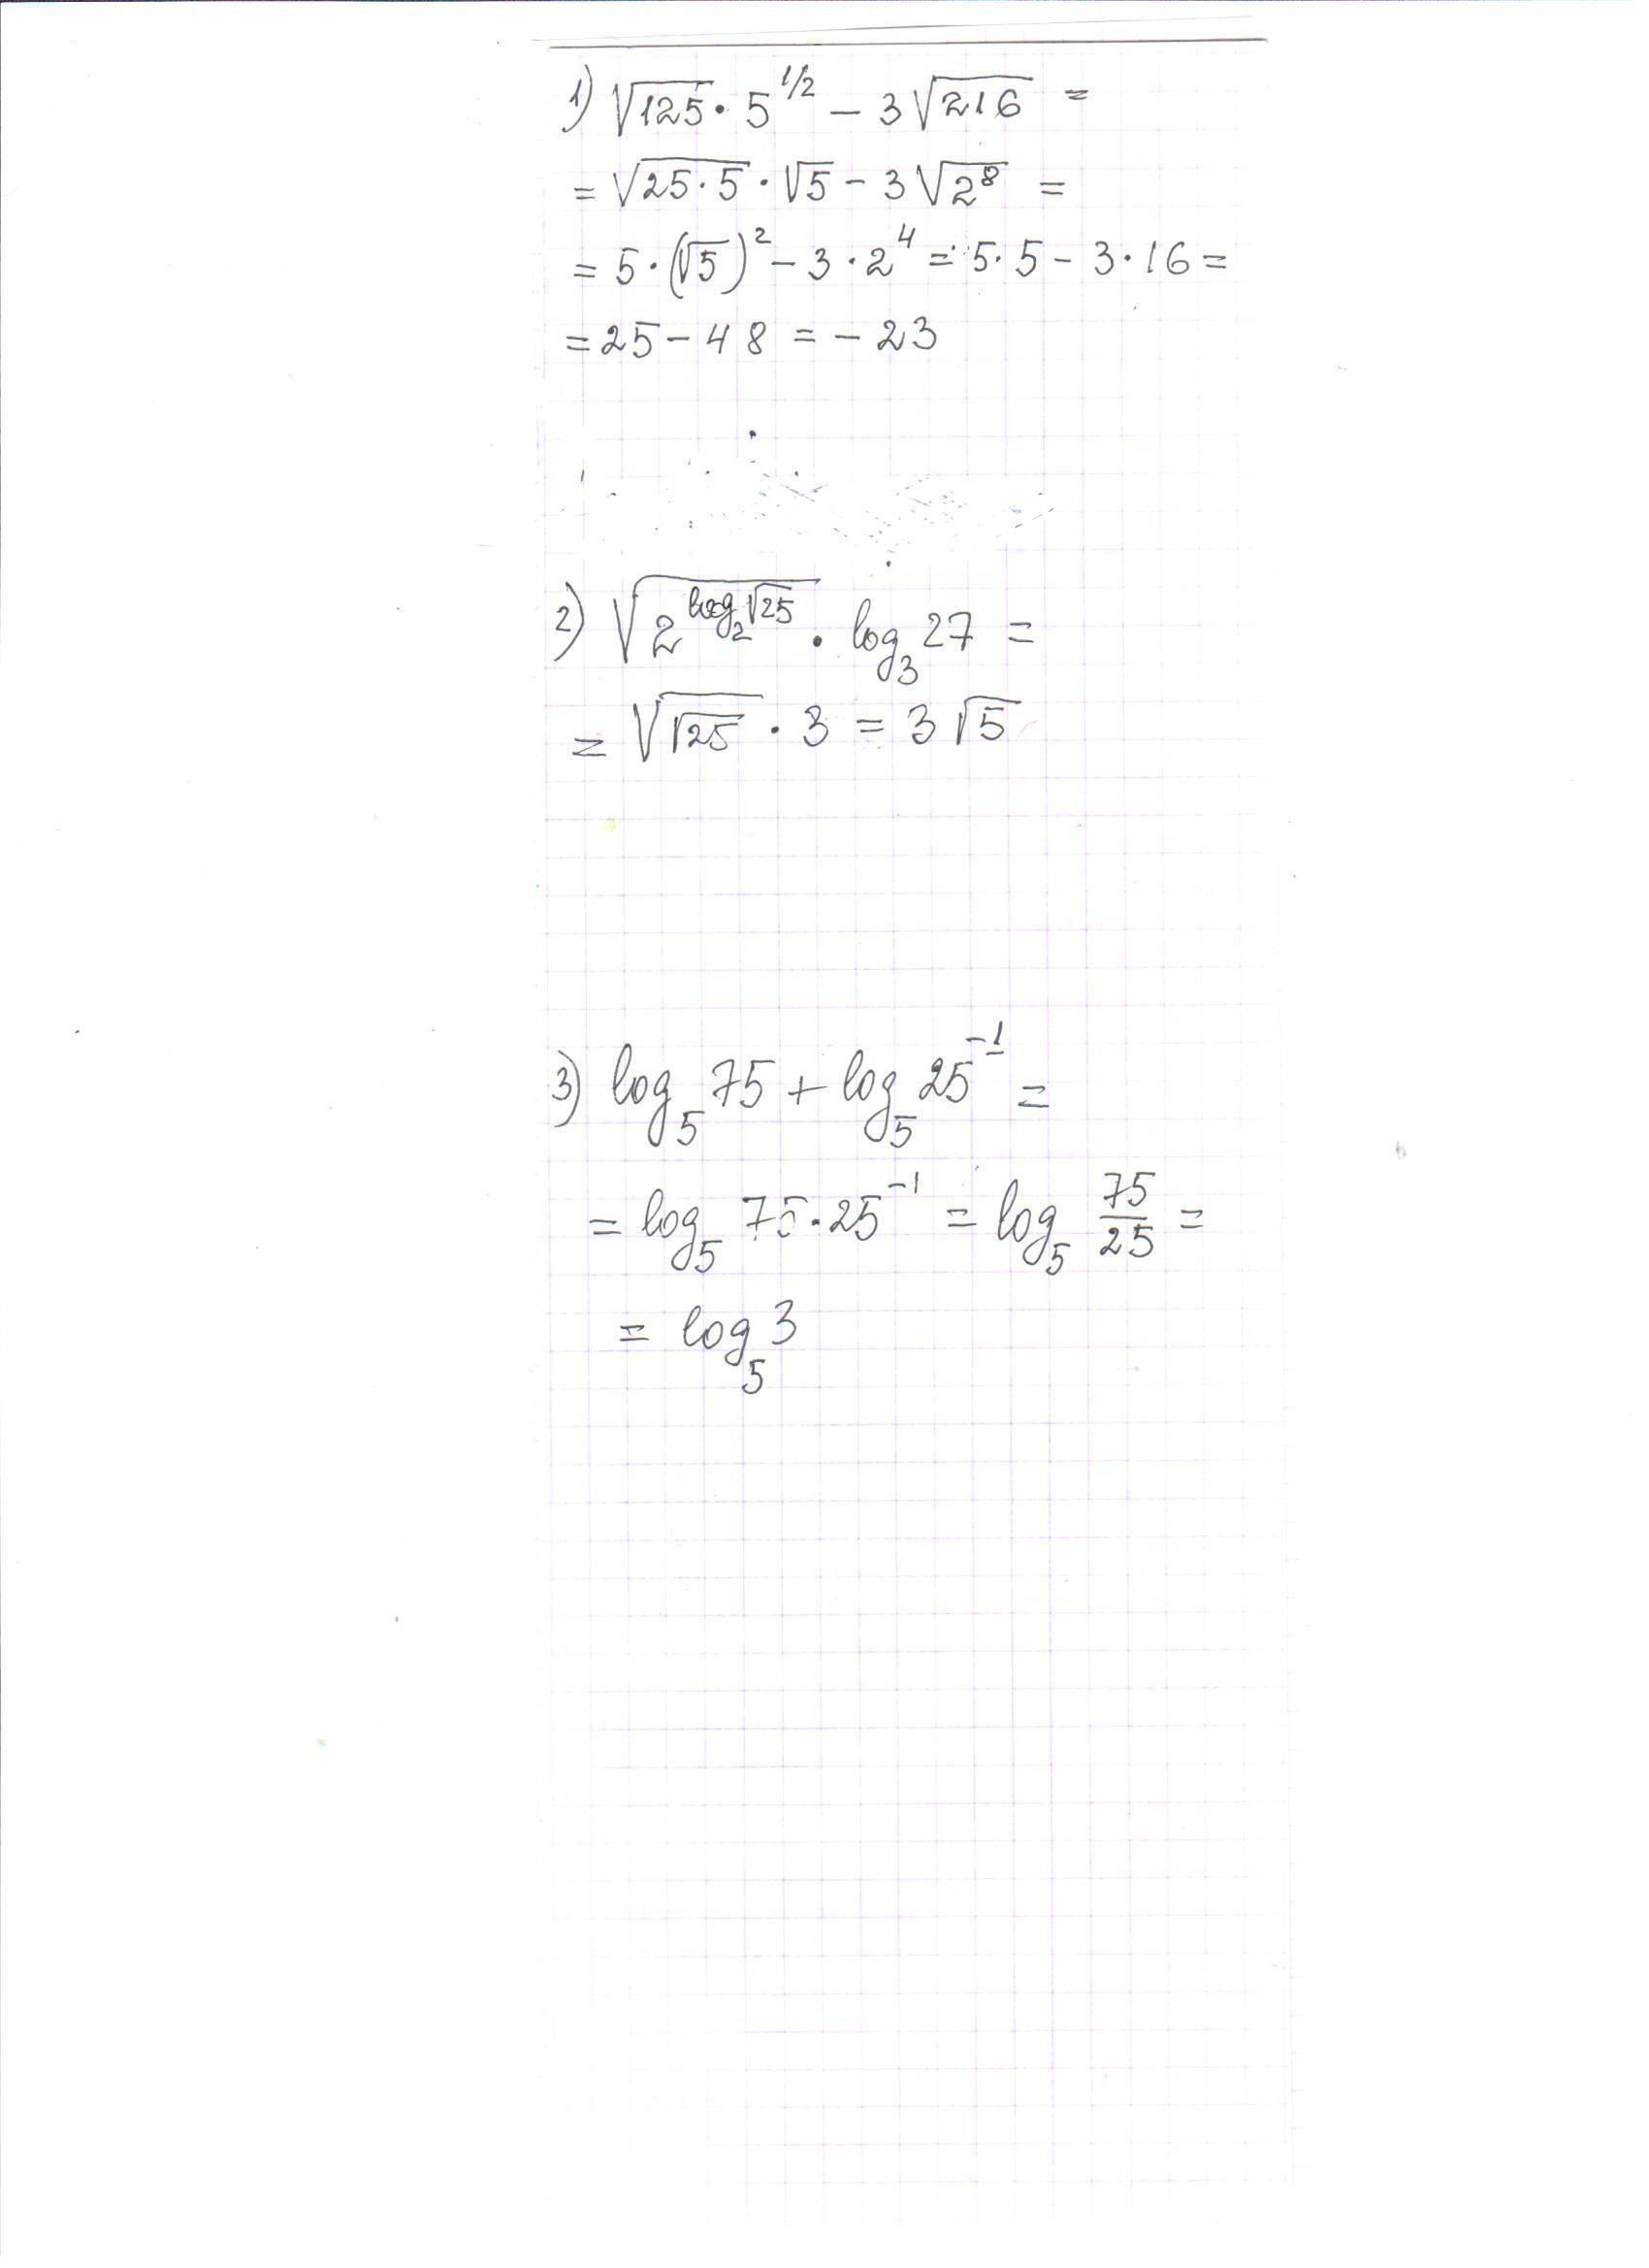 1) √125 · 5^1/2 − 3√216 =
= √25·5 · √5 − 3√2^8 =
= 5·(√5)^2 − 3·2^4 = 5·5 − 3·16 =
= 25 − 48 = − 23
2) √(2^(log_2 √25)) · log_3 27 =
= √√25 · 3 = 3√5
3) log_5 75 + log_5 25^−1 =
= log_5 75·25^−1 = log_5 75/25 =
= log_5 3